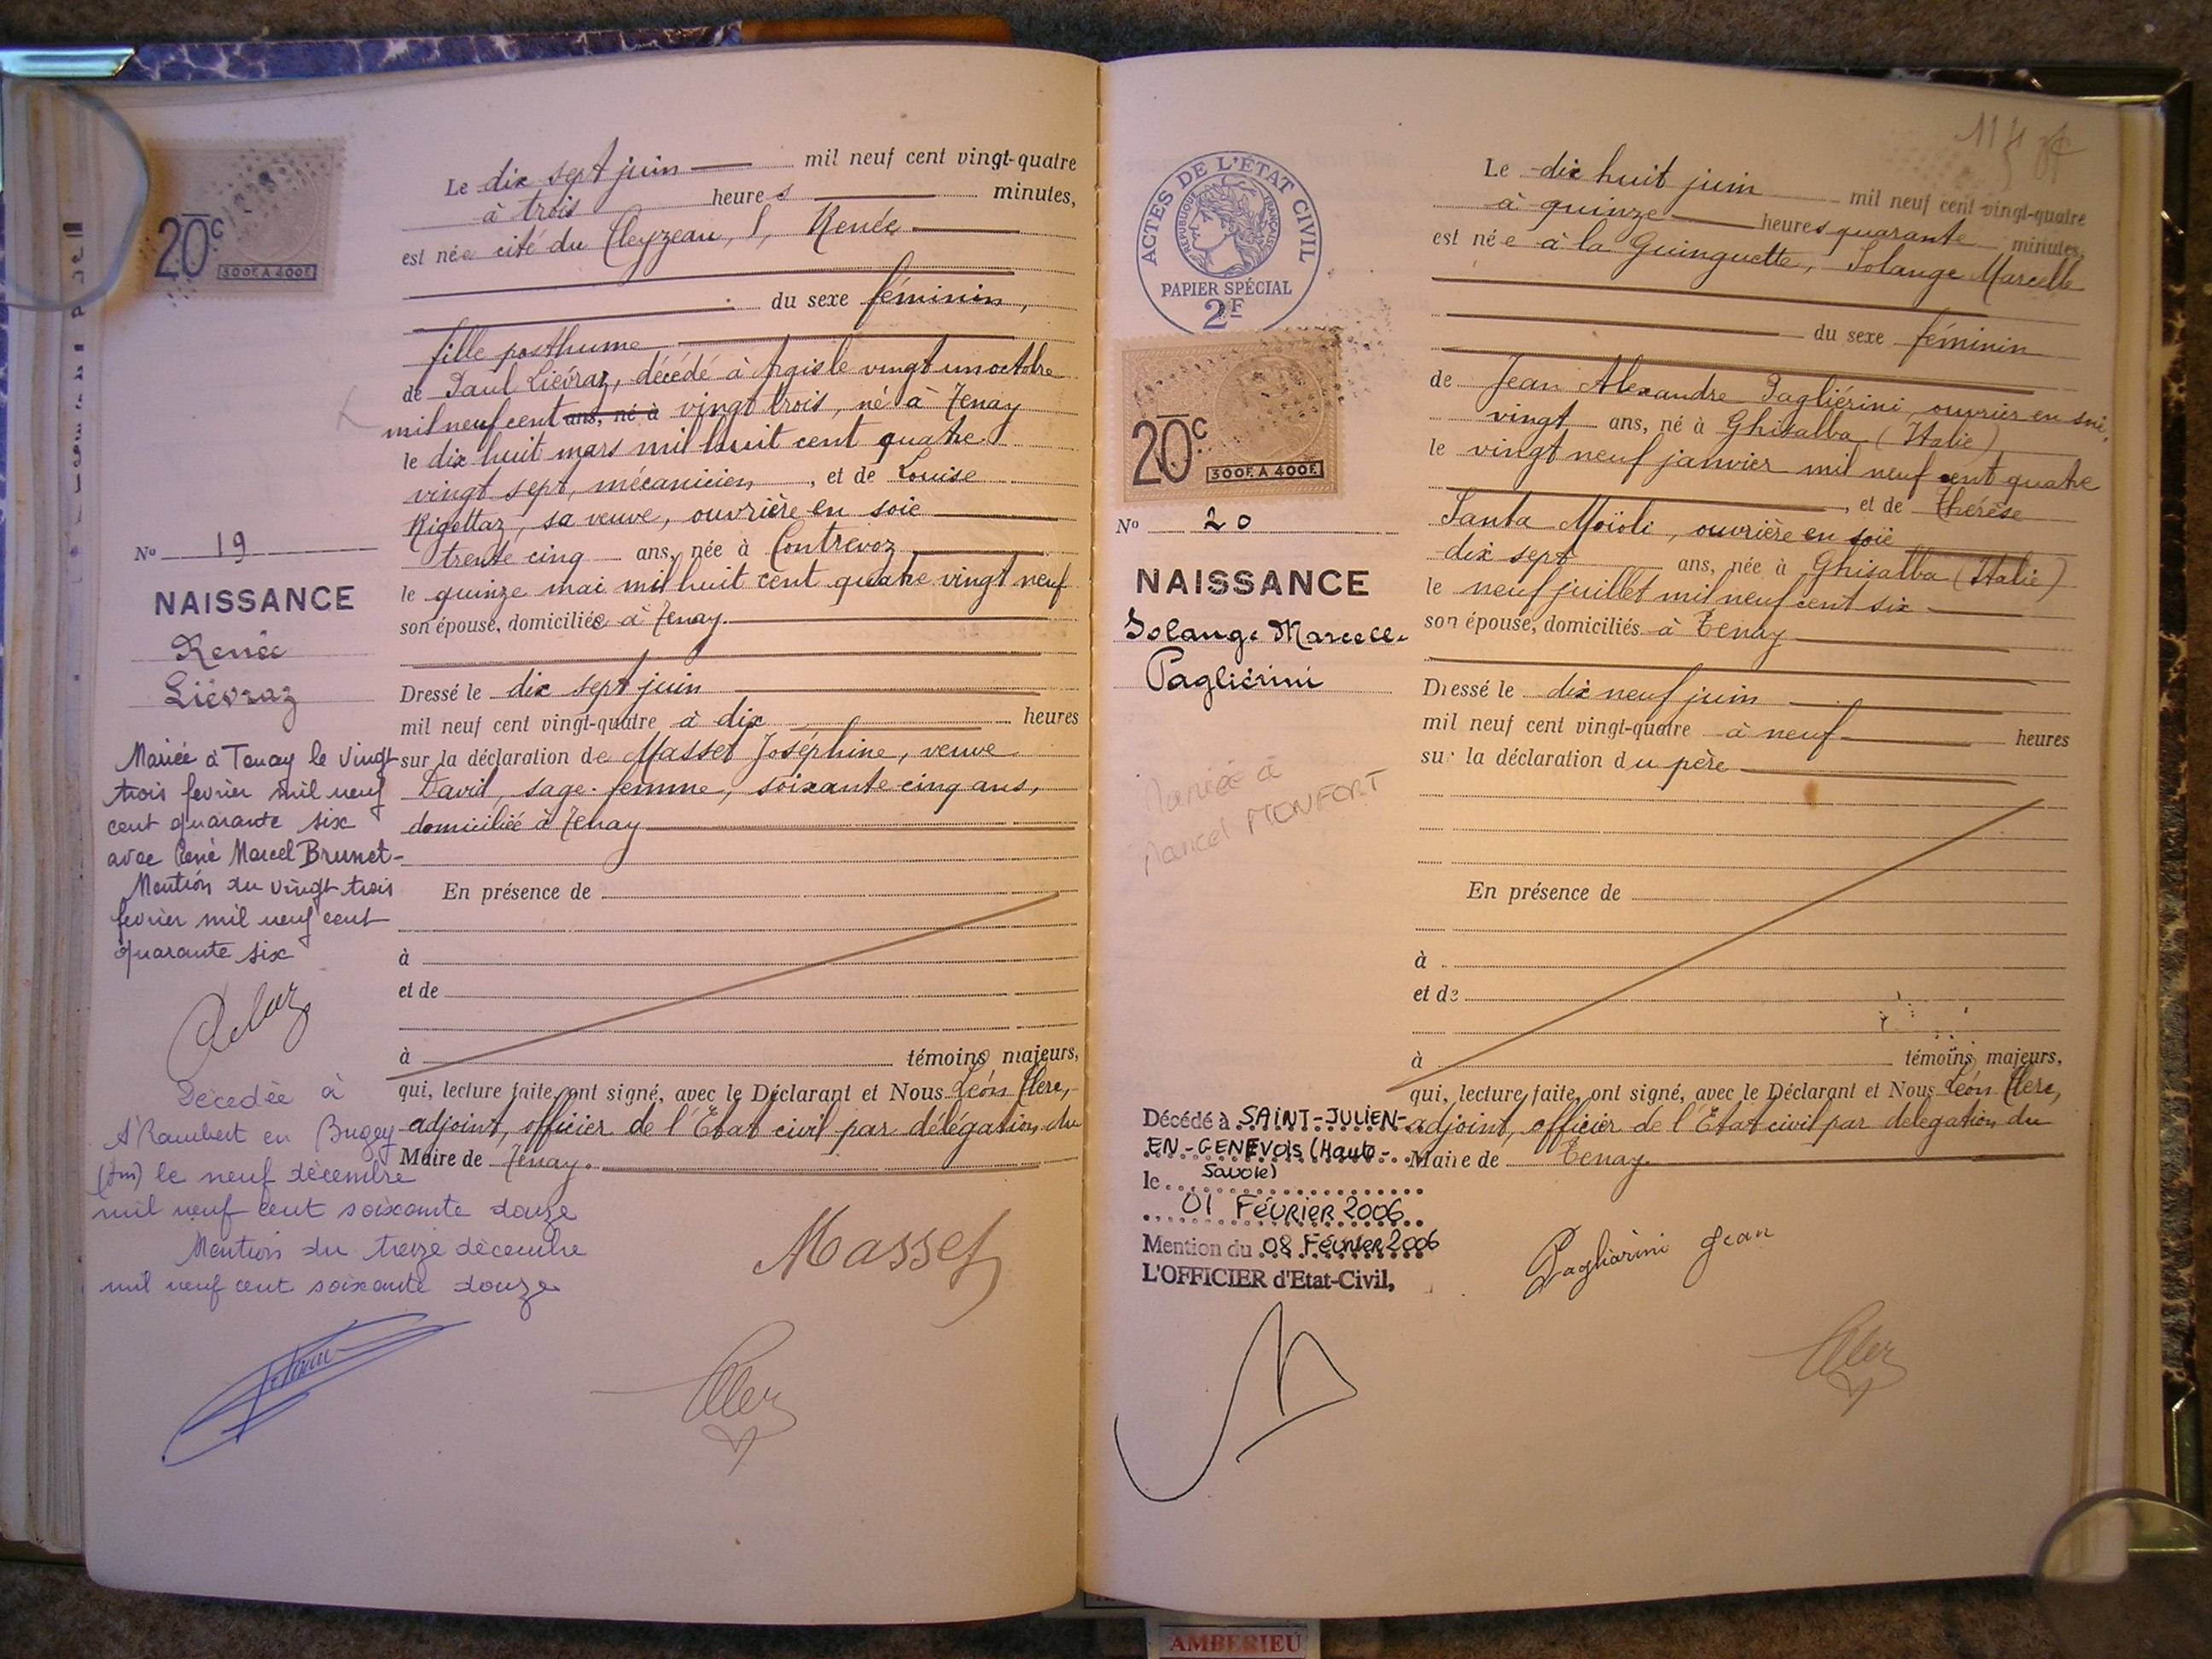 20c
300F. A 400F.
No 19
NAISSANCE
Renée
Liévraz
Mariée à Tenay le vingt
trois fevrier mil neuf
cent quarante six
avec René Marcel Brunet-
Mention du vingt trois
fevrier mil neuf cent
quarante six
Décédée à
St Rambert en Bugey
(Ain) le neuf décembre
mil neuf cent soixante douze
Mention du treize décembre
mil neuf cent soixante douze
Le dix sept juin mil neuf cent vingt-quatre
à trois heures minutes,
est née cité du Cleyzeau, Renée
du sexe féminin,
fille posthume
de Paul Liévraz, décédé à Argis le vingt un octobre
mil neuf cent ans, né à vingt trois, né à Tenay
le dix huit mars mil huit cent quatre
vingt sept, mécanicien, et de Louise
Rigottaz, sa veuve, ouvrière en soie
trente cinq ans, née à Contrevoz
le quinze mai mil huit cent quatre vingt neuf
son épouse, domiciliée à Tenay.
Dressé le dix sept juin
mil neuf cent vingt-quatre à dix heures
sur la déclaration de Masset Joséphine, veuve
David, sage-femme, soixante cinq ans,
domiciliée à Tenay
En présence de
à
et de
à témoins majeurs,
qui, lecture faite, ont signé, avec le Déclarant et Nous Léon Clerc,
adjoint, officier de l'Etat civil par délégation du
Maire de Tenay.
Masset
Clerc
114
ACTES DE L'ÉTAT CIVIL
REPUBLIQUE FRANÇAISE
PAPIER SPÉCIAL
2F
20c
300F. A 400F.
No 20
NAISSANCE
Solange Marcelle
Pagliérini
Mariée à
Marcel MONFORT
Décédé à SAINT-JULIEN-
EN-GENEVOIS (Haute-
Savoie)
le
01 FÉVRIER 2006
Mention du 08 Février 2006
L'OFFICIER d'Etat-Civil,
Le dix huit juin mil neuf cent vingt-quatre
à quinze heures quarante minutes,
est née à la Guinguette, Solange Marcelle
du sexe féminin
de Jean Alexandre Pagliérini, ouvrier en soie,
vingt ans, né à Ghisalba (Italie)
le vingt neuf janvier mil neuf cent quatre
, et de Thérèse
Santa Moïoli, ouvrière en soie
dix sept ans, née à Ghisalba (Italie)
le neuf juillet mil neuf cent six
son épouse, domiciliés à Tenay
Dressé le dix neuf juin
mil neuf cent vingt-quatre à neuf heures
sur la déclaration du père
En présence de
à
et de
à témoins majeurs,
qui, lecture faite, ont signé, avec le Déclarant et Nous Léon Clerc,
adjoint, officier de l'Etat civil par délégation du
Maire de Tenay.
Pagliarini Jean
Clerc
AMBERIEU